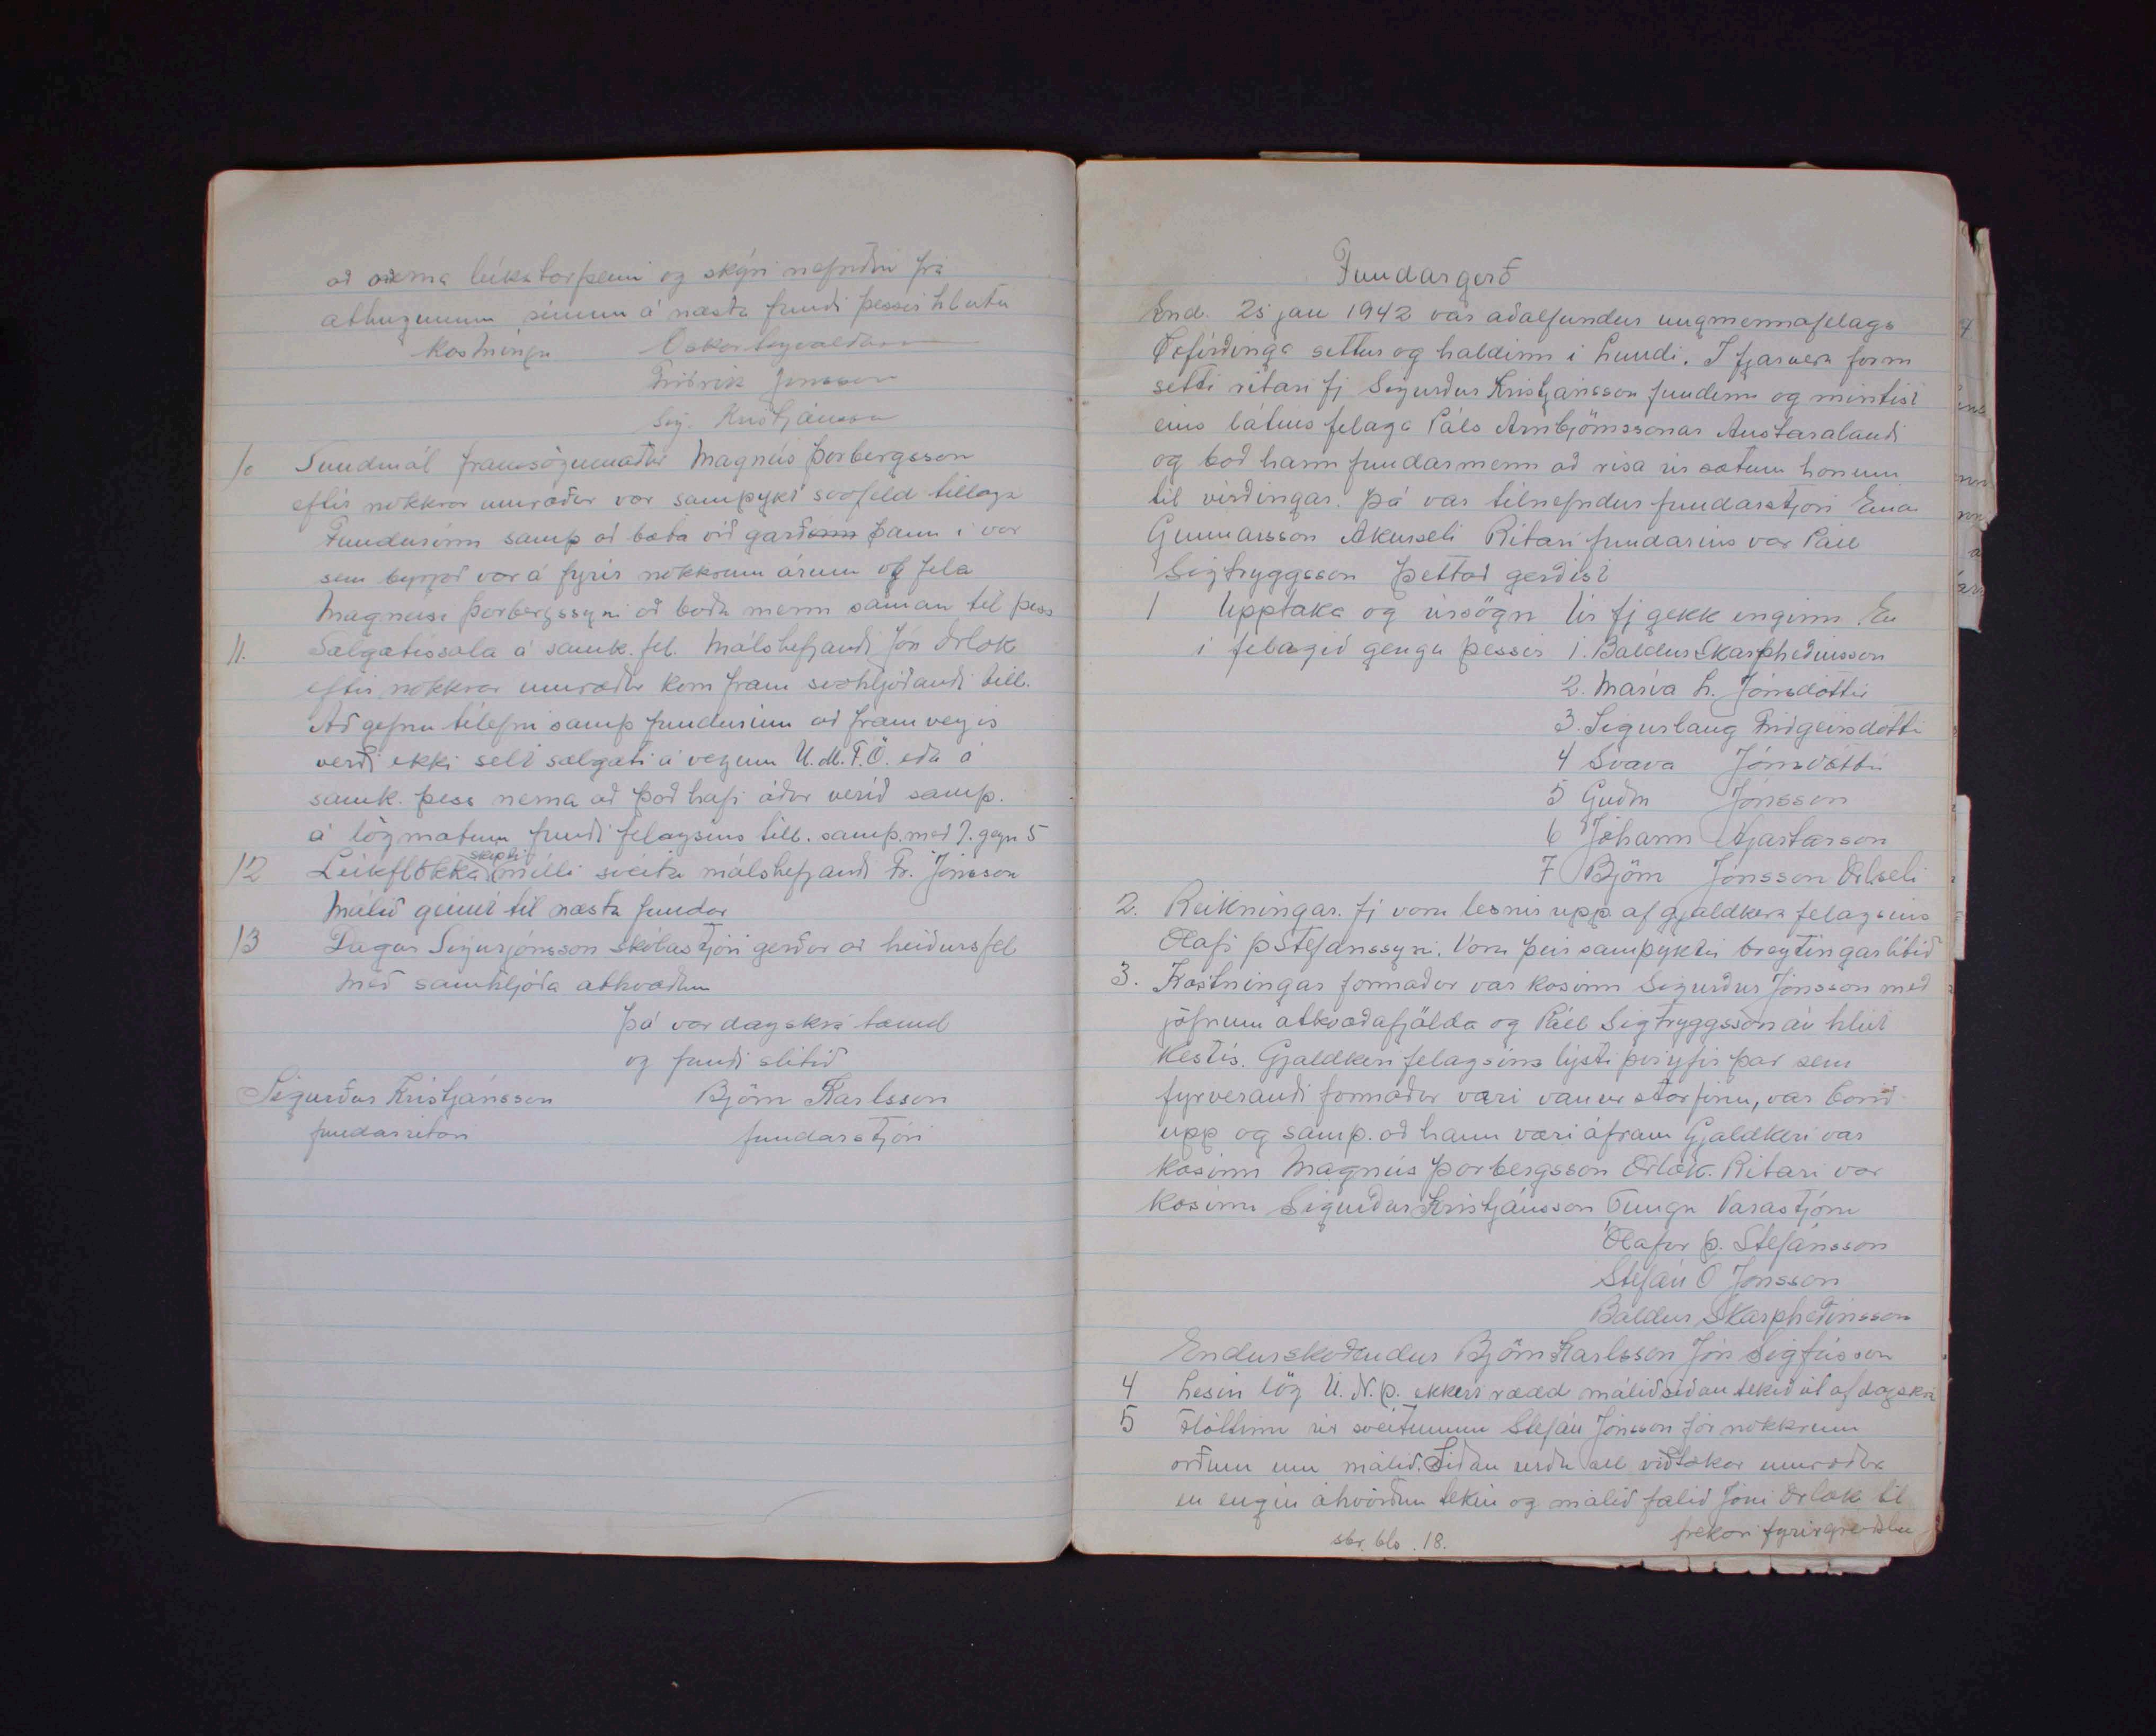 að æma leikstarfsemi og skýri nefndin frá
athugunum sínum á næsta fundi þessir hlutu
kosningu Oskar Ingvaldsson
Friðrik Jónsson
Sig. Kristjánsson
10 Sundmál framsögumaður Magnús Þorbergsson
eftir nokkrar umræður var samþykt svofeld tillaga
Fundurinn samþ að bæta við garð þann í vor
sem byrjað var á fyrir nokkrum árum og fela
Magnusi Þorbergssyni að boða menn saman til þess
11. Sælgætissala á samk. fél. Málshefjandi Jón Örlæk
eftir nokkrar umræður kom fram svohljóðandi till.
Að gefnu tilefni samþ fundurinn að framvegis
verði ekki selt sælgæti á vegum U.M.F.Ö. eða á
samk. þess nema að það hafi áður verið samþ.
á lögmætum fundi félagsins till. samþ. með 7. gegn 5
12 Leikflokka skipti milli sveita málshefjandi Fr. Jónsson
Málið geimt til næsta fundar
13 Dagur Sigurjónsson skólastjóri gerður að heiðursfél
með samhljóða athvæðum
Þá var dagskrá tæmd
og fundi slitið
Sigurður Kristjánsson Björn Karlsson
fundarritari fundarstjóri
Fundargerð
25 jan 1942 var aðalfundur ungmennafélags
Öxfirðinga settur og haldinn í Lundi. I fjarveru form
setti ritari fj Sigurður Kristjánsson fundinn og mintist
eins látins félaga Páls Arnbjörnssonar Austaralandi
og bað hann fundarmenn að rísa úr sætum honum
til virðingar. Þá var tilnefndur fundarstjóri Einar
Gunnarsson Akurseli Ritari fundarins var Páll
Sigtryggsson Þettað gerðist
1 Upptaka og úrsögn Úr fj gekk enginn. En
í félagið gengu þessir 1. Baldur Skarphéðinsson
2. María H. Jónsdóttir
3. Sigurlaug Friðgeirsdóttir
4 Svava Jónsdóttir
5 Guðm Jónsson
6 Jóhann Hjartarson
7 Björn Jónsson Ærlseli
2. Reikningar. fj voru lesnir upp af gjaldkera félagsins
Ólafi Þ Stefánssyni. Voru þeir samþyktir breytingarlítið
3. Kostningar formaður var kosinn Sigurður Jónsson með
jöfnum atkvæðafjölda og Páll Sigtryggsson án hlut
kestis. Gjaldkeri félagsins lýsti því yfir þar sem
fyrverandi formaður væri vanur störfinu, var borið
upp og samþ. að hann væri áfram Gjaldkeri var
kosinn Magnús Þorbergsson Örlæk. Ritari var
kosinn Sigurður Kristjánsson Tungu Varastjórn
Ólafur Þ. Stefánsson
Stefán Ó Jónsson
Baldur Skarphéðinsson
Endurskoðendur Björn Karlsson Jón Sigfússon
4 Lesin lög U.N.Þ. ekkert rædd málið síðan tekið út af dagskrá
5 Flóttinn úr sveitunum Stefán Jónsson fór nokkrum
orðum um málið. Síðan urðu all viðtækar umræður
en engin ákvörðun tekin og málið falið Jóni Ærlæk til
frekari fyrirgreiðslu
sbr. bls. 18.